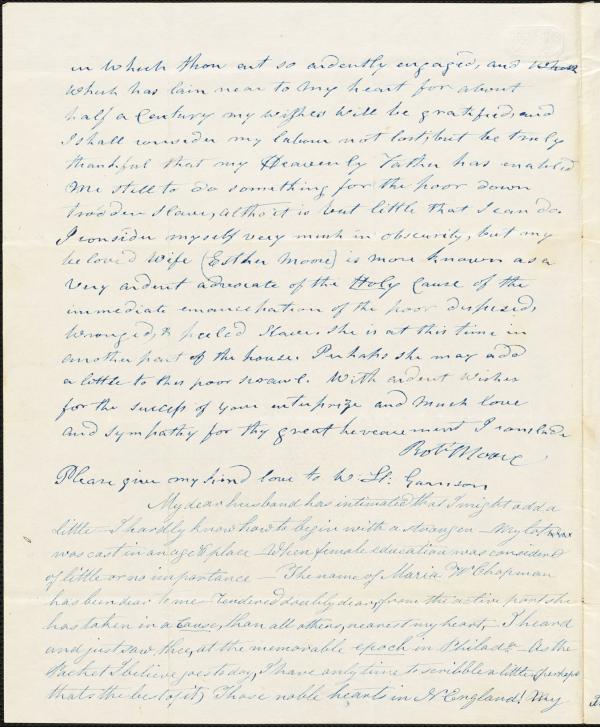 in which thou art so ardently engaged, and which
which has lain near to my heart for about
half a Century my wishes will be gratified, and
I shall consider my labour not lost, but be truly
thankful that my Heavenly Father has enabled
me still to do something for the poor down
trodden Slave, altho it is but little that I can do.
I consider myself very much in obscurity, but my
beloved Wife (Esther Moore) is more known as a
very ardent advocate of the Holy Cause of the
immediate emancipation of the poor despised,
wronged, & peeled Slave. She is at this time in
another part of the house. Perhaps she may add
a little to this poor scrawl. With ardent wishes
for the success of your enterprize and much love
and sympathy for thy great bereavement I conclude
Robt Moore
Please give my kind love to W. Ll. Garrison
My dear husband has intimated that I might add a
little – I hardly know how to begin with a stranger – My lot
was cast in an age & place – When female education was considered
of little or no importance – The name of Maria W Chapman
has been dear to me – rendered doubly dear, from the active part she
has taken in a Cause, than all others, nearest my heart, – I heard
and just saw thee, at the memorable epoch in Philada – As the
Packet I believe goes to day, I have only time to scribble a little (perhaps
thats the best of it) Those noble hearts in N England! My